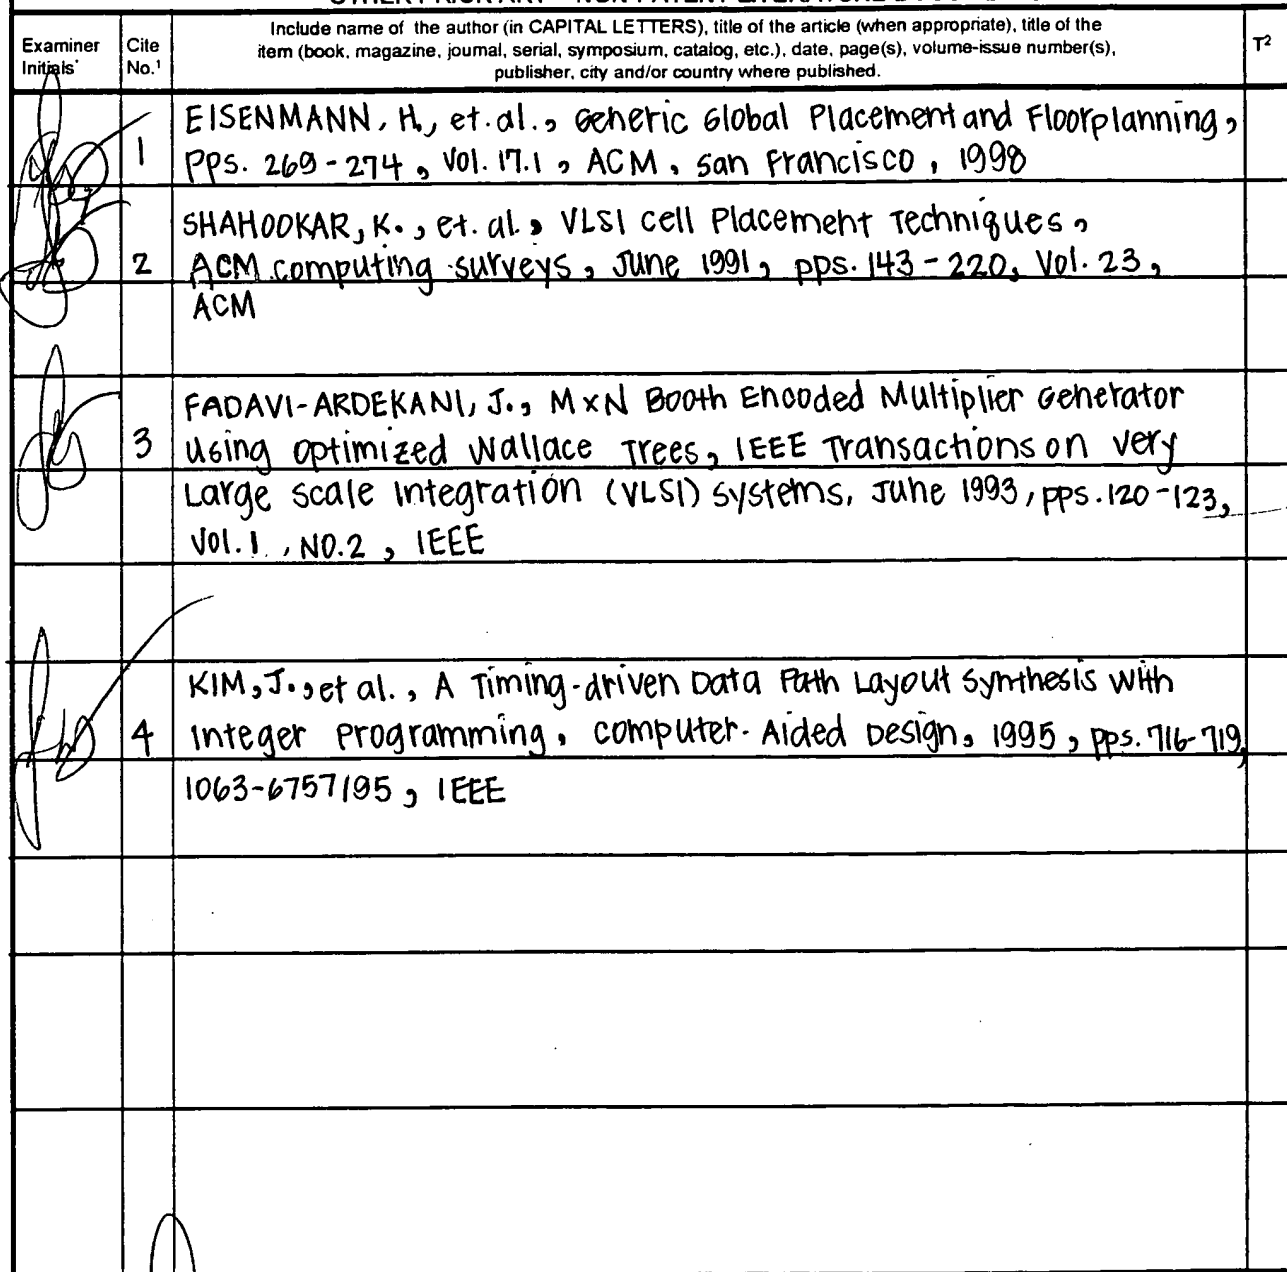 Examiner Initials*
Cite No.¹
Include name of the author (in CAPITAL LETTERS), title of the article (when appropriate), title of the
item (book, magazine, journal, serial, symposium, catalog, etc.), date, page(s), volume-issue number(s),
publisher, city and/or country where published.
T²
1
EISENMANN, H., et. al., Generic Global Placement and Floorplanning,
PPS. 269-274, Vol. 17.1, ACM, San Francisco, 1998
SHAHOOKAR, K., et. al., VLSI Cell Placement Techniques,
2
ACM computing surveys, June 1991, pps. 143-220, Vol. 23,
ACM
FADAVI-ARDEKANI, J., MxN Booth Encoded Multiplier Generator
3
Using Optimized Wallace Trees, IEEE Transactions on Very
Large Scale Integration (VLSI) Systems, June 1993, pps. 120-123,
Vol. 1, NO. 2, IEEE
KIM, J., et al., A Timing-driven Data Path Layout Synthesis with
4
Integer Programming, Computer-Aided Design, 1995, pps. 716-719,
1063-6757/95, IEEE